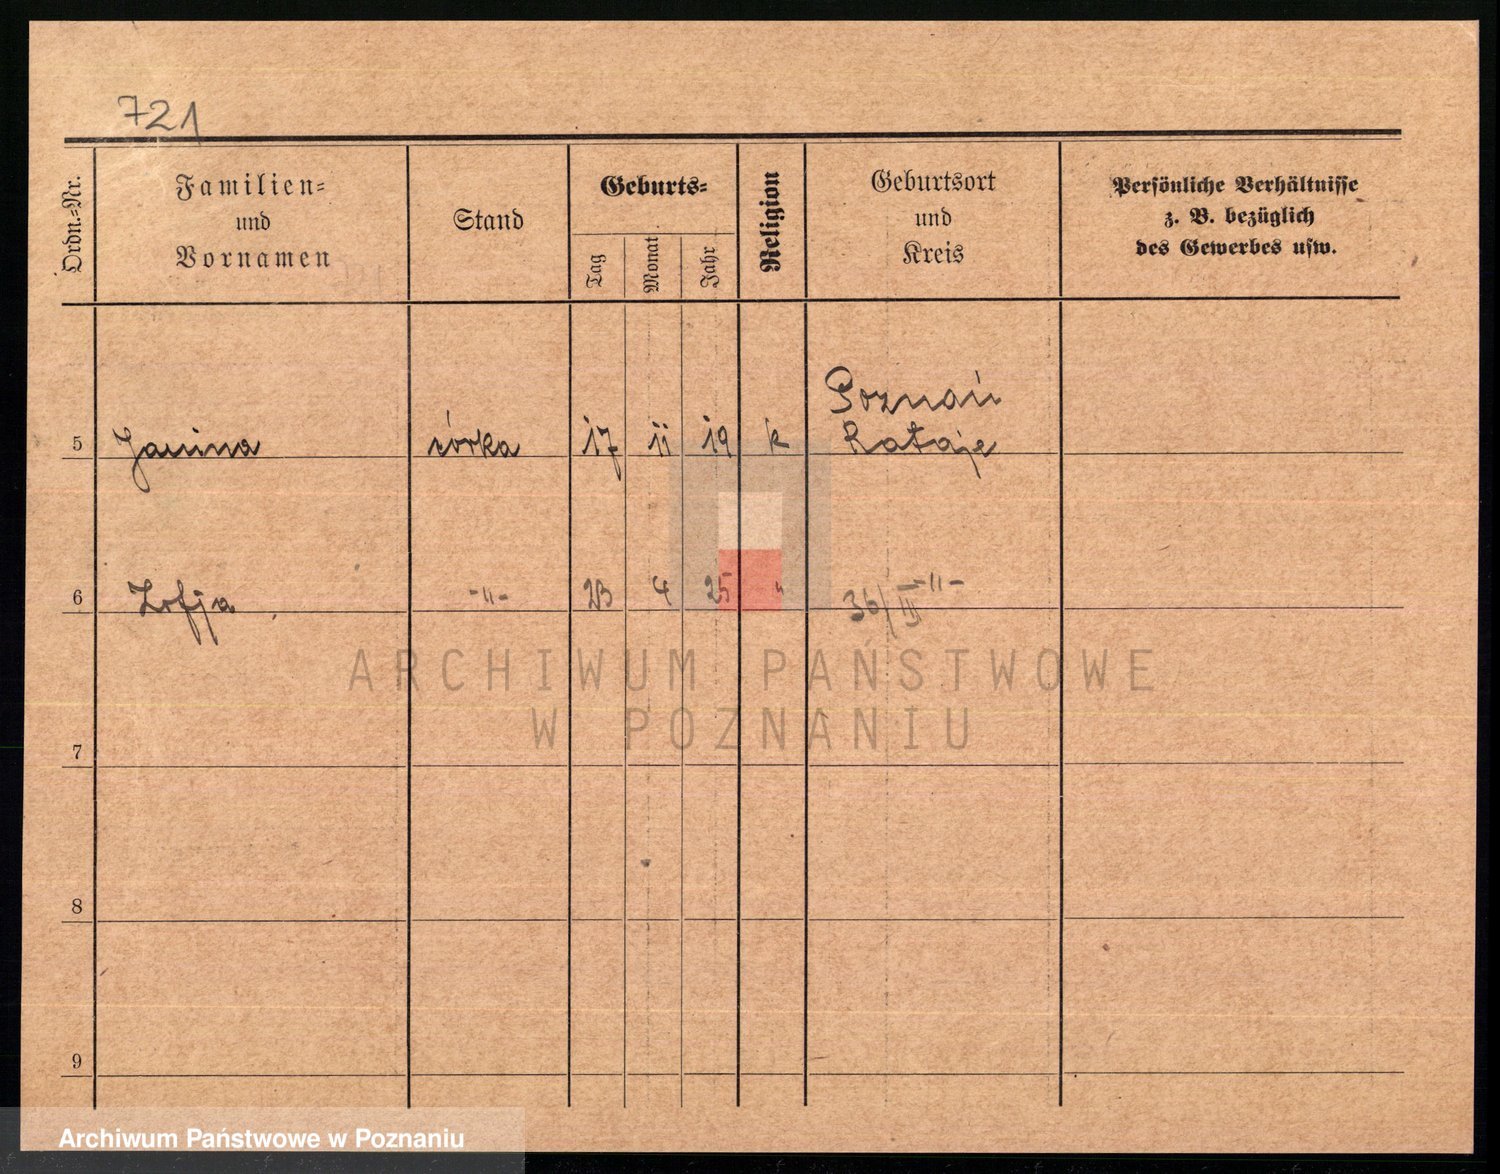 721
Ordn.-Nr.
Familien-
und
Vornamen
Stand
Geburts-
Tag
Monat
Jahr
Religion
Geburtsort
und
Kreis
Persönliche Verhältnisse
z. B. bezüglich
des Gewerbes usw.
Poznań
5 Janina córka 17 11 19 k Rataje
6 Zofja -"- 23 4 25 " 36/III -"-
ARCHIWUM PAŃSTWOWE
W POZNANIU
7
8
9
Archiwum Państwowe w Poznaniu